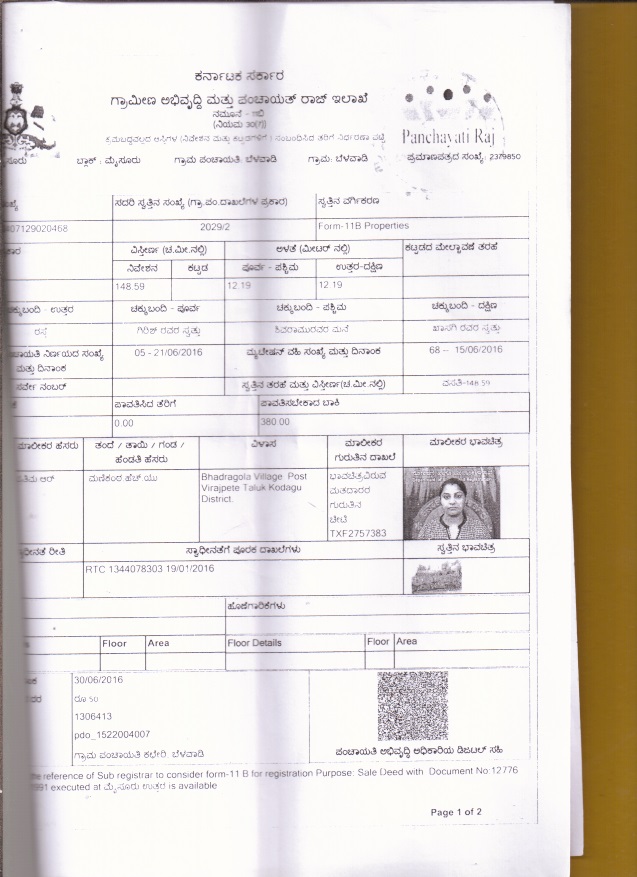 ಕರ್ನಾಟಕ ಸರ್ಕಾರ
ಗ್ರಾಮೀಣ ಅಭಿವೃದ್ಧಿ ಮತ್ತು ಪಂಚಾಯತ್ ರಾಜ್ ಇಲಾಖೆ
ನಮೂನೆ - ೧೧ಬಿ
(ನಿಯಮ 30(ಗ))
Panchayati Raj
ಬ್ಲಾಕ್ : ಮೈಸೂರು ಗ್ರಾಮ ಪಂಚಾಯತಿ: ಬೆಳವಾಡಿ ಗ್ರಾಮ: ಬೆಳವಾಡಿ ಪ್ರಮಾಣಪತ್ರದ ಸಂಖ್ಯೆ: 2379850
ಸದರಿ ಸ್ವತ್ತಿನ ಸಂಖ್ಯೆ (ಗ್ರಾ.ಪಂ.ದಾಖಲೆಗಳ ಪ್ರಕಾರ) ಸ್ವತ್ತಿನ ವರ್ಗೀಕರಣ
07129020468 2029/2 Form-11B Properties
ವಿಸ್ತೀರ್ಣ (ಚ.ಮೀ.ನಲ್ಲಿ) ಅಳತೆ (ಮೀಟರ್ ನಲ್ಲಿ) ಕಟ್ಟಡದ ಮೇಲ್ಛಾವಣೆ ತರಹೆ
ನಿವೇಶನ ಕಟ್ಟಡ ಪೂರ್ವ - ಪಶ್ಚಿಮ ಉತ್ತರ-ದಕ್ಷಿಣ
148.59 12.19 12.19
ಚಕ್ಕುಬಂದಿ - ಉತ್ತರ ಚಕ್ಕುಬಂದಿ - ಪೂರ್ವ ಚಕ್ಕುಬಂದಿ - ಪಶ್ಚಿಮ ಚಕ್ಕುಬಂದಿ - ದಕ್ಷಿಣ
ರಸ್ತೆ ಗಿರಿಜ್ ರವರ ಸ್ವತ್ತು ಶಿವರಾಮುರವರ ಮನೆ ಖಾಸಗಿ ರವರ ಸ್ವತ್ತು
ನಿರ್ಣಯದ ಸಂಖ್ಯೆ ಮತ್ತು ದಿನಾಂಕ 05 - 21/06/2016 ಮ್ಯುಟೇಷನ್ ವಹಿ ಸಂಖ್ಯೆ ಮತ್ತು ದಿನಾಂಕ 68 – 15/06/2016
ಸರ್ವೇ ನಂಬರ್ ಸ್ವತ್ತಿನ ತರಹೆ ಮತ್ತು ವಿಸ್ತೀರ್ಣ(ಚ.ಮೀ.ನಲ್ಲಿ) ವಸತಿ-148.59
ಪಾವತಿಸಿದ ತೆರಿಗೆ ಪಾವತಿಸಬೇಕಾದ ಬಾಕಿ
0.00 380.00
ಮಾಲೀಕರ ಹೆಸರು ತಂದೆ / ತಾಯಿ / ಗಂಡ / ವಿಳಾಸ ಮಾಲೀಕರ ಮಾಲೀಕರ ಭಾವಚಿತ್ರ
ಹೆಂಡತಿ ಹೆಸರು ಗುರುತಿನ ದಾಖಲೆ
ಆರ್ ಮಣಿಕಂಠ ಹೆಚ್ ಯು Bhadragola Village Post ಭಾವಚಿತ್ರವಿರುವ
Virajpete Taluk Kodagu ಮತದಾರರ
District. ಗುರುತಿನ
ಚೀಟಿ
TXF2757383
ರೀತಿ ಸ್ವಾಧೀನತೆಗೆ ಪೂರಕ ದಾಖಲೆಗಳು ಸ್ವತ್ತಿನ ಭಾವಚಿತ್ರ
RTC 1344078303 19/01/2016
ಹೊಣೆಗಾರಿಕೆಗಳು
Floor Area Floor Details Floor Area
30/06/2016
ರೂ 50
1306413
pdo_1522004007
ಗ್ರಾಮ ಪಂಚಾಯತಿ ಕಛೇರಿ, ಬೆಳವಾಡಿ ಪಂಚಾಯತಿ ಅಭಿವೃದ್ಧಿ ಅಧಿಕಾರಿಯ ಡಿಜಿಟಲ್ ಸಹಿ
the reference of Sub registrar to consider form-11 B for registration Purpose: Sale Deed with Document No:12776
executed at ಮೈಸೂರು ಉತ್ತರ is available
Page 1 of 2